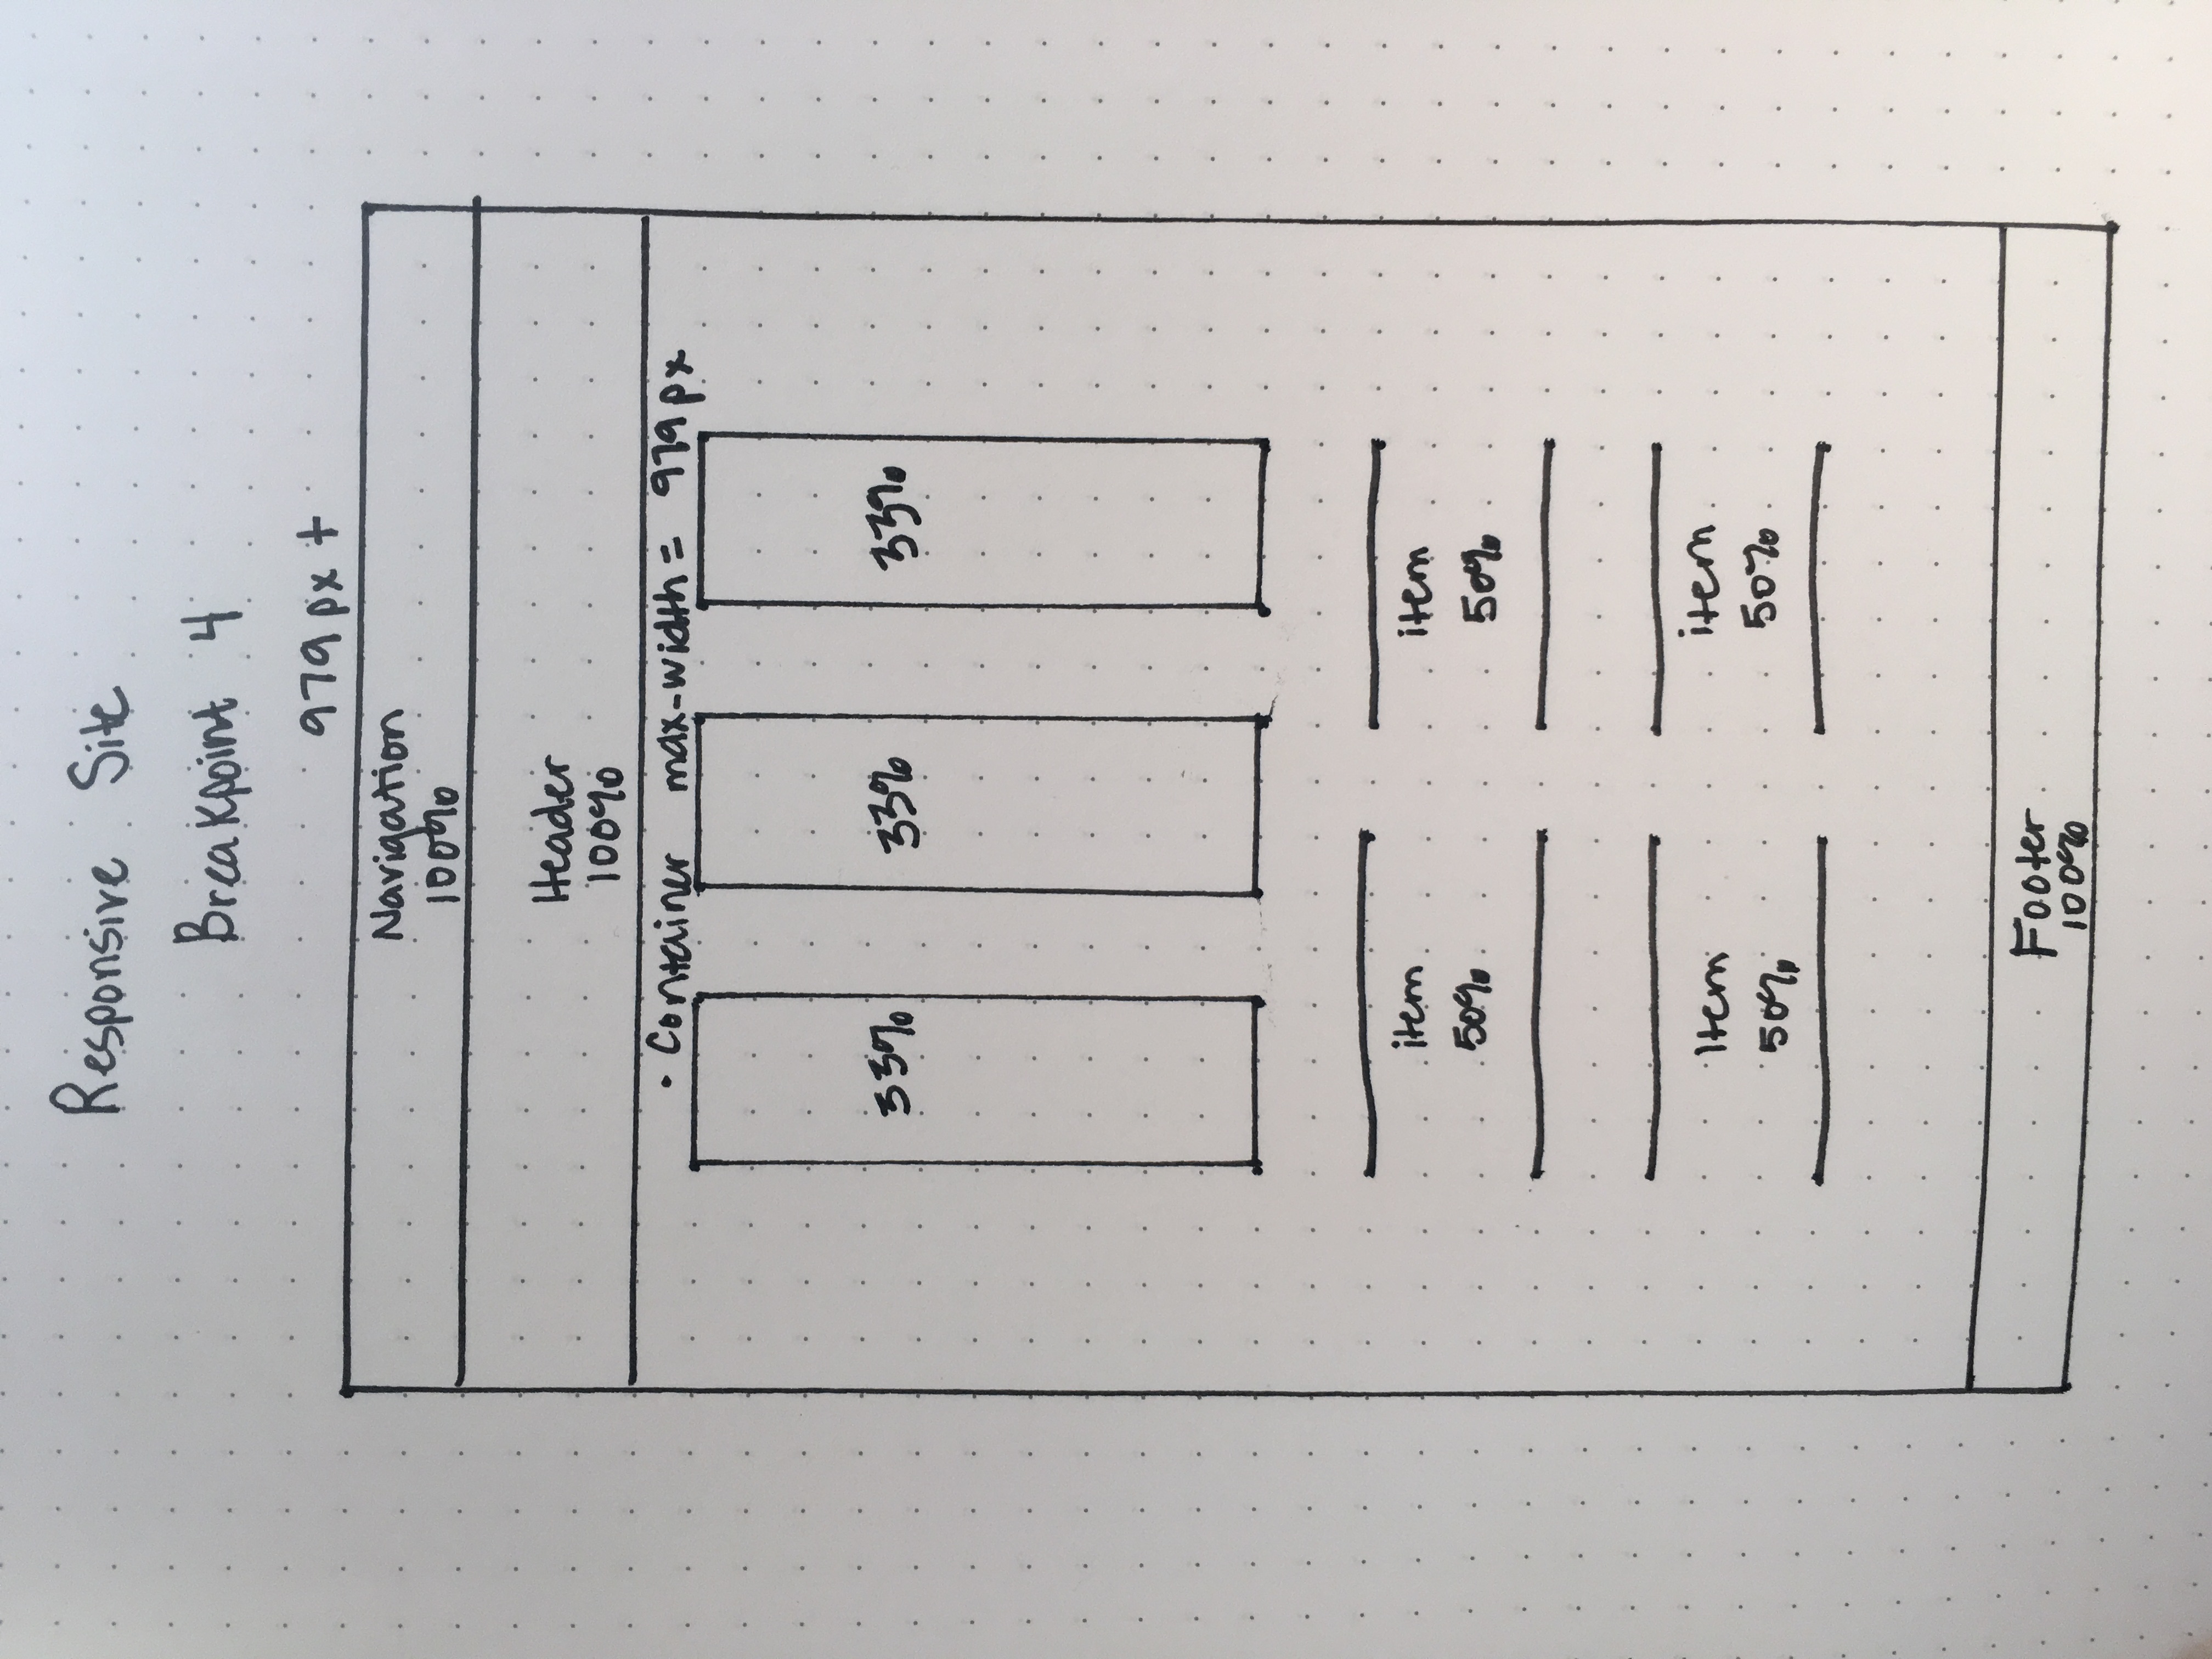 Responsive Site
Breakpoint 4
979px +
Navigation
100%
Header
100%
• Container max-width = 979px
33% 33% 33%
item item
50% 50%
Item item
50% 50%
Footer
100%